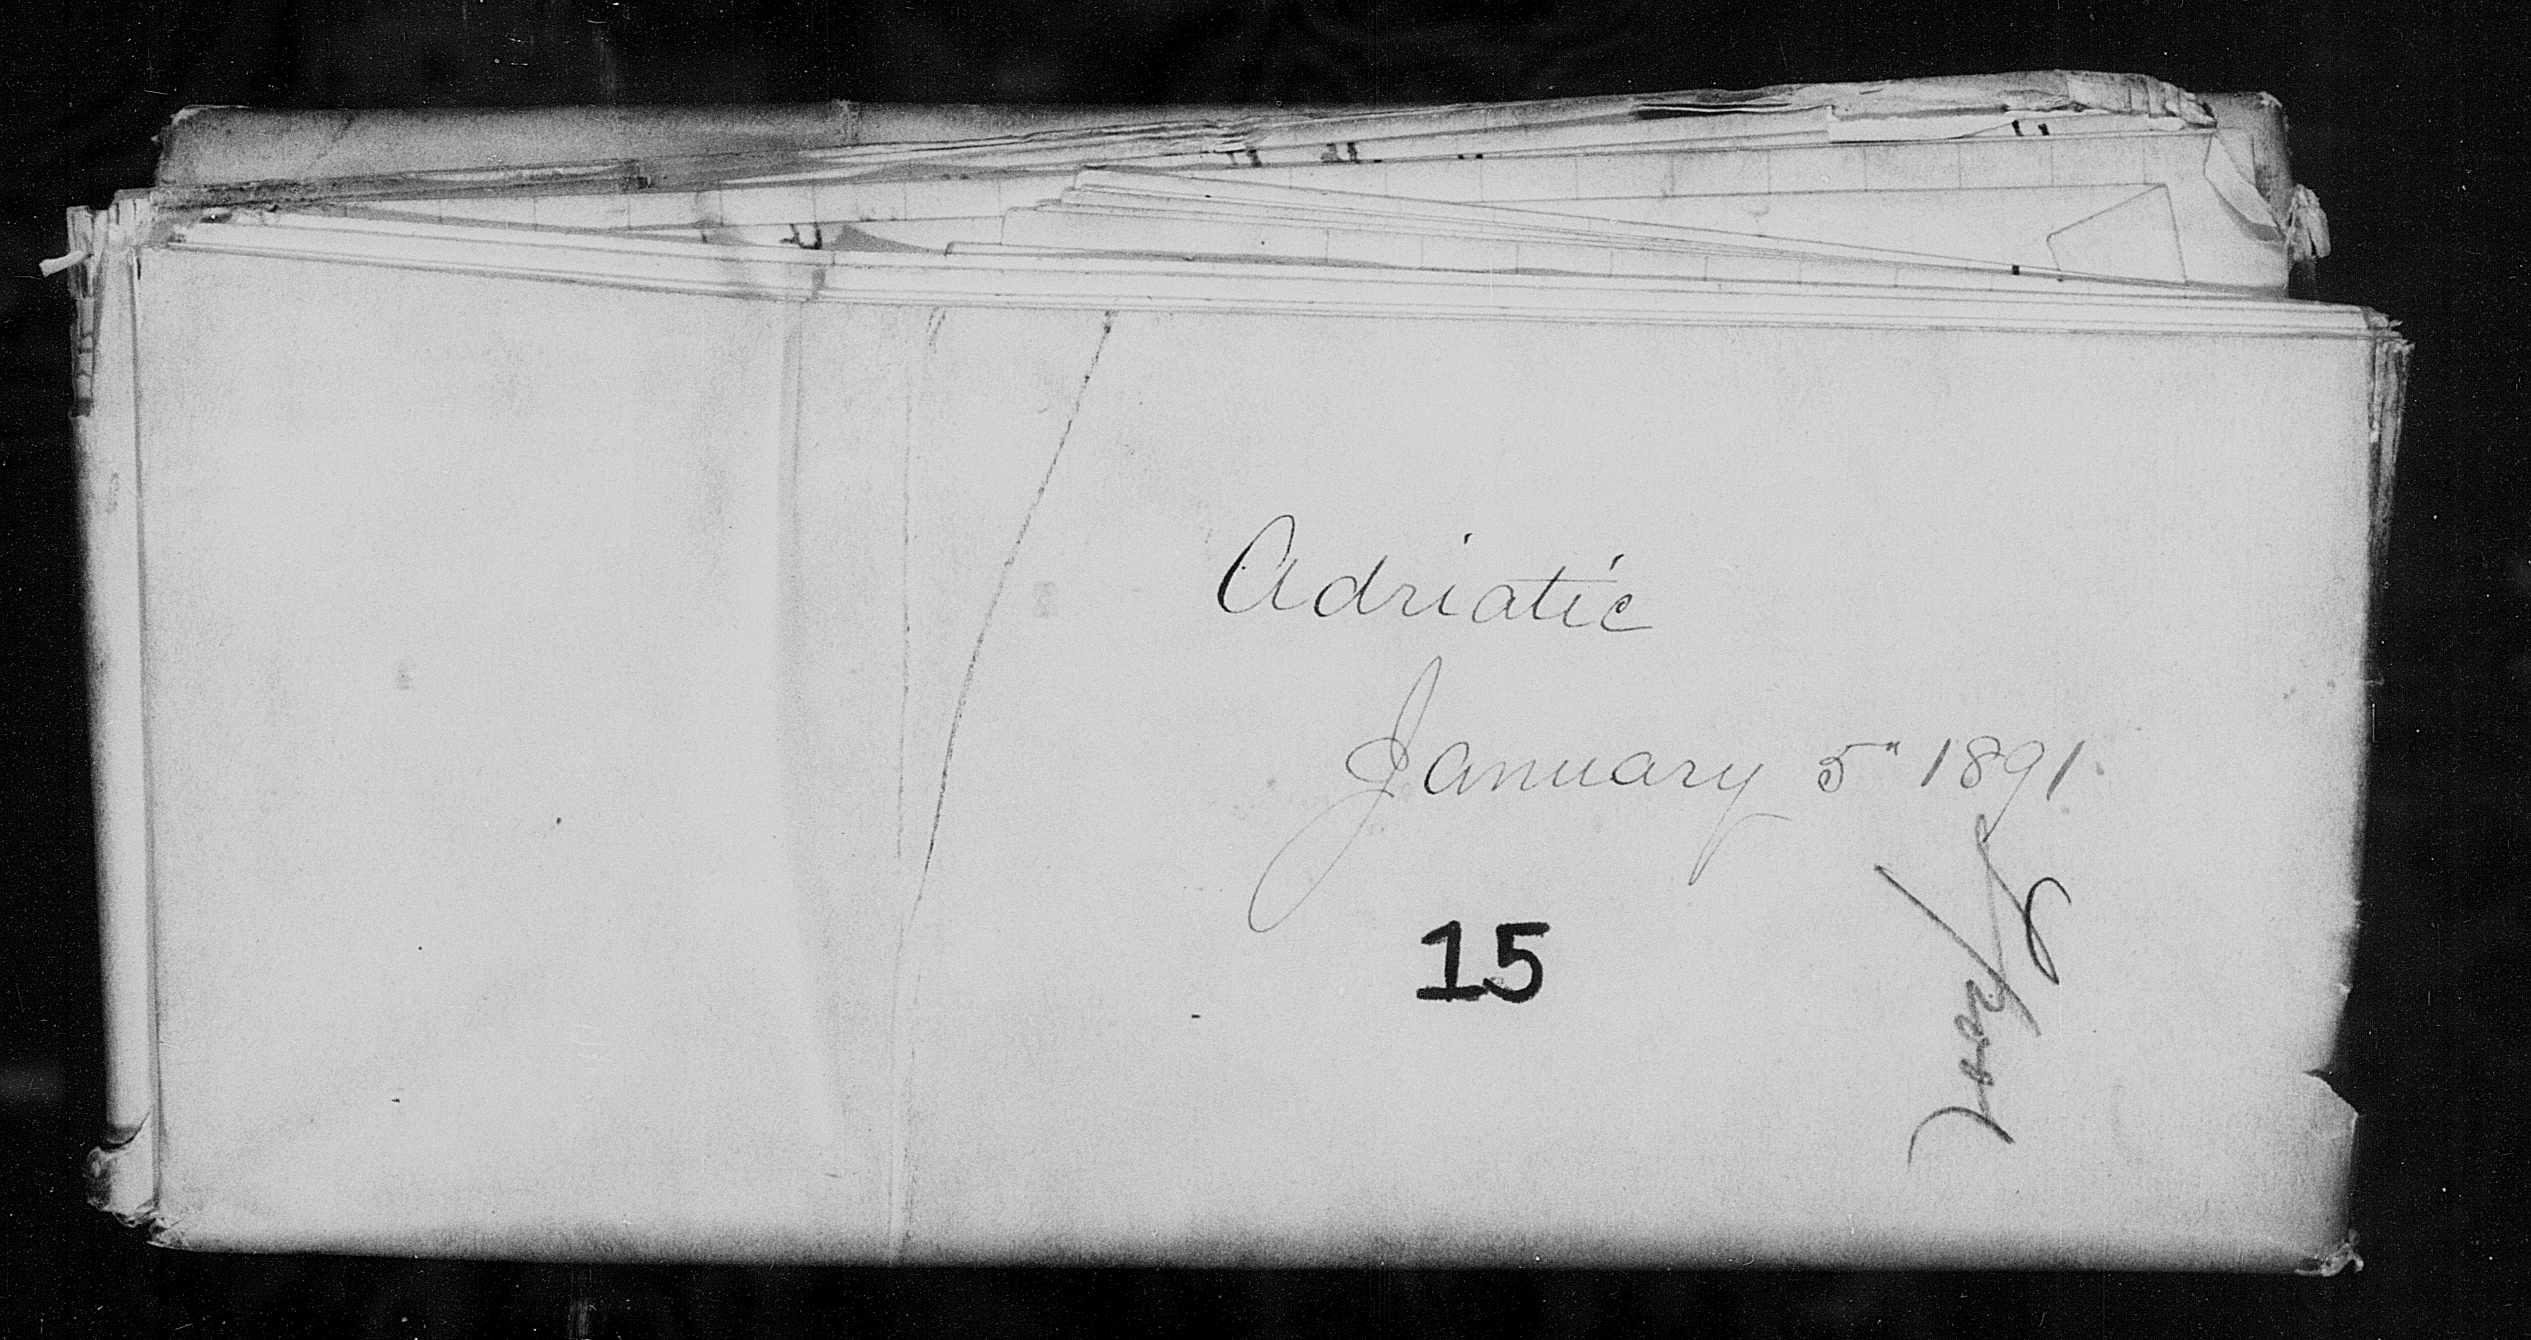 Adriatic
January 5" 1891
15
L'pool